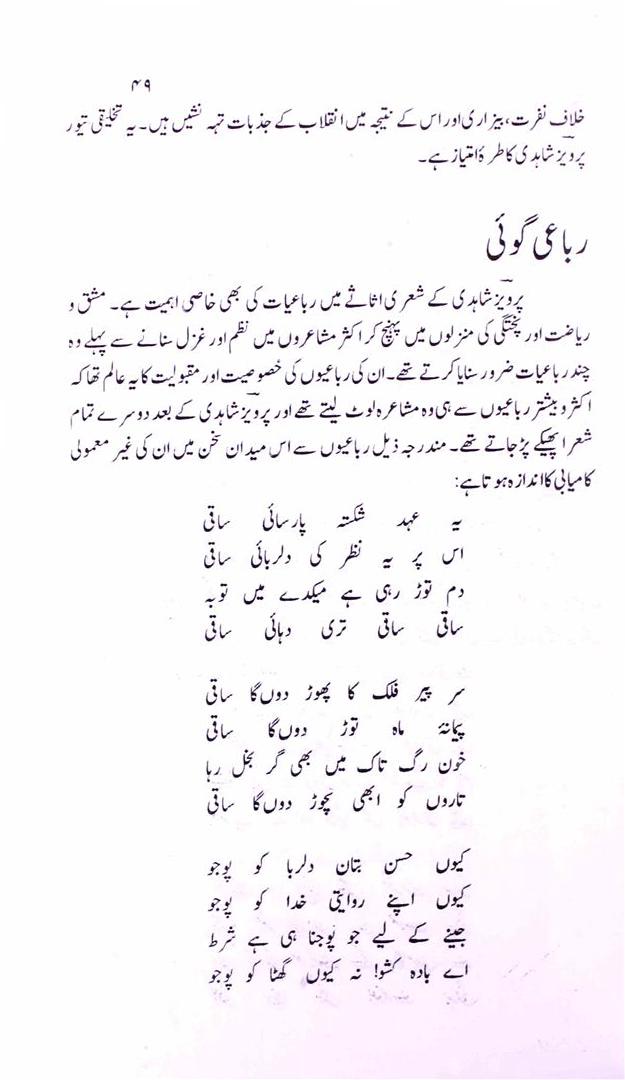 ۴۹
خلاف نفرت، بیزاری اور اس کے نتیجہ میں انقلاب کے جذبات تہہ نشیں ہیں۔ یہ تخلیقی تیور
پرویز شاہدی کا طرۂ امتیاز ہے۔
رباعی گوئی
پرویز شاہدی کے شعری اثاثے میں رباعیات کی بھی خاصی اہمیت ہے۔ مشق و
ریاضت اور پختگی کی منزلوں میں پہنچ کر اکثر مشاعروں میں نظم اور غزل سنانے سے پہلے وہ
چند رباعیات ضرور سنایا کرتے تھے۔ ان کی رباعیوں کی خصوصیت اور مقبولیت کا یہ عالم تھا کہ
اکثر و بیشتر رباعیوں سے ہی وہ مشاعرہ لوٹ لیتے تھے اور پرویز شاہدی کے بعد دوسرے تمام
شعرا پھیکے پڑ جاتے تھے۔ مندرجہ ذیل رباعیوں سے اس میدان سخن میں ان کی غیر معمولی
کامیابی کا اندازہ ہوتا ہے:
یہ عہد شکستہ پارسائی ساقی
اس پر یہ نظر کی دلربائی ساقی
دم توڑ رہی ہے میکدے میں توبہ
ساقی ساقی تری دہائی ساقی
سر پیر فلک کا پھوڑ دوں گا ساقی
پیمانۂ ماہ توڑ دوں گا ساقی
خون رگ تاک میں بھی گر بخل رہا
تاروں کو ابھی نچوڑ دوں گا ساقی
کیوں حسن بتان دلربا کو پوجو
کیوں اپنے روایتی خدا کو پوجو
جینے کے لیے جو پوجنا ہی ہے شرط
اے بادہ کشو! نہ کیوں گھٹا کو پوجو